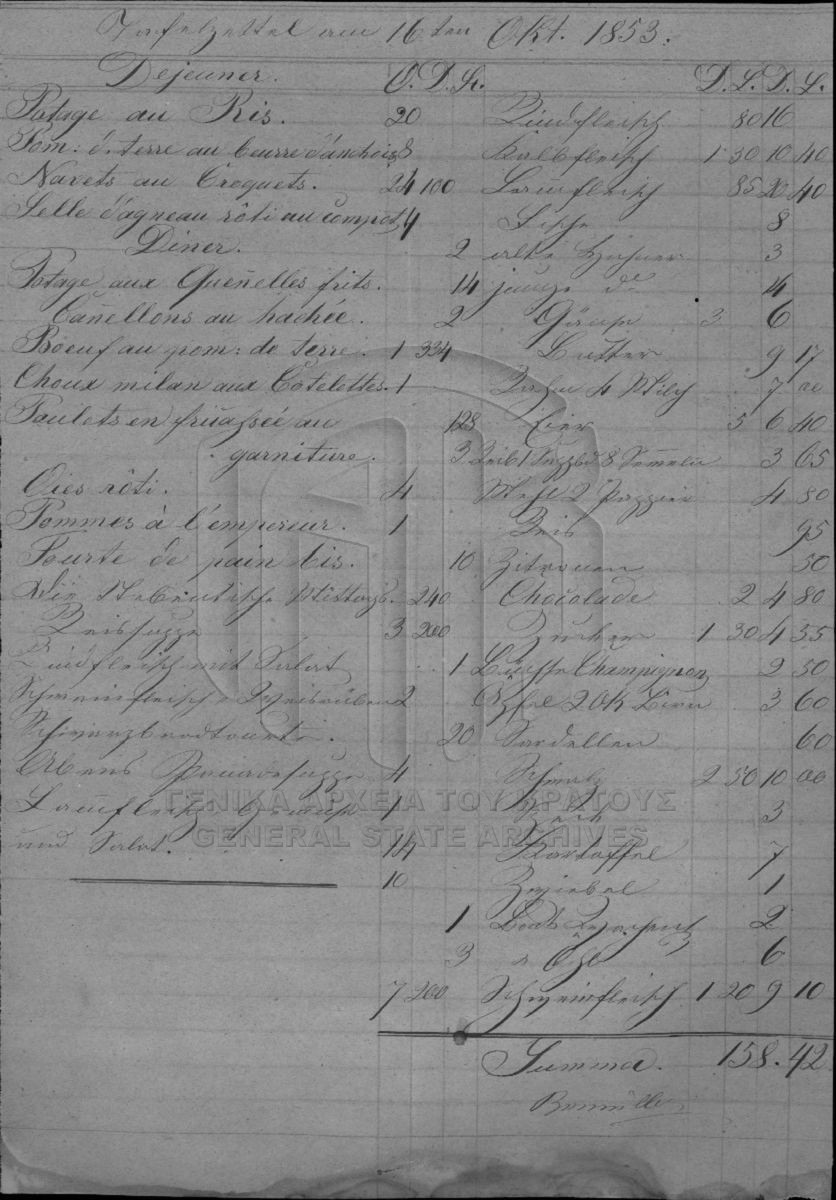 Tafelzettel am 16ten Okt. 1853.
Dejeuner. O. D. St. D. L. D. L.
Potage au Ris. 20 Rindfleisch 80 16
Pom: d. terre au beurre d'anchois 8 Kalbfleisch 1 30 10 40
Navets au Croquets. 24 100 Lammfleisch 85 20 40
Selle d'agneau rôti au compot 4 Fische 8
Diner. 2 alte Hühner 3
Potage aux Queñelles frits. 14 junge de 4
Cañellons au hachée. 2 Gänse 3 6
Boeuf au pom: de terre. 1 334 Butter 9 17
Choux milan aux Cotelettes. 1 Rahm 4 Milch 7 00
Poulets en fricassée au 128 Eier 5 6 40
garniture. 3 8 Semmeln 3 65
Oies rôti. 4 Mehl 2 4 80
Pommes à l'empereur. 1 Reis 95
Tourte de pain bis. 10 Zitronen 50
Die Mittags. 240 Chocolade 2 4 80
Reissuppe 3 200 Zucker 1 30 4 55
Rindfleisch mit Salat 1 Büchse Champignon 2 50
Schweinfleisch Weisrüben 2 Apfel 20K Birn 3 60
Schwarzbrodtourte. 20 Sardellen 60
Abens suppe 4 Schmalz 2 50 10 00
Lammfleisch 1 3
und Salat. 14 Kartoffel 7
10 Zwiebel 1
1 2
3 " Öhl 6
7 200 Schweinfleisch 1 20 9 10
Summa. 158.42
ΓΕΝΙΚΑ ΑΡΧΕΙΑ ΤΟΥ ΚΡΑΤΟΥΣ
GENERAL STATE ARCHIVES